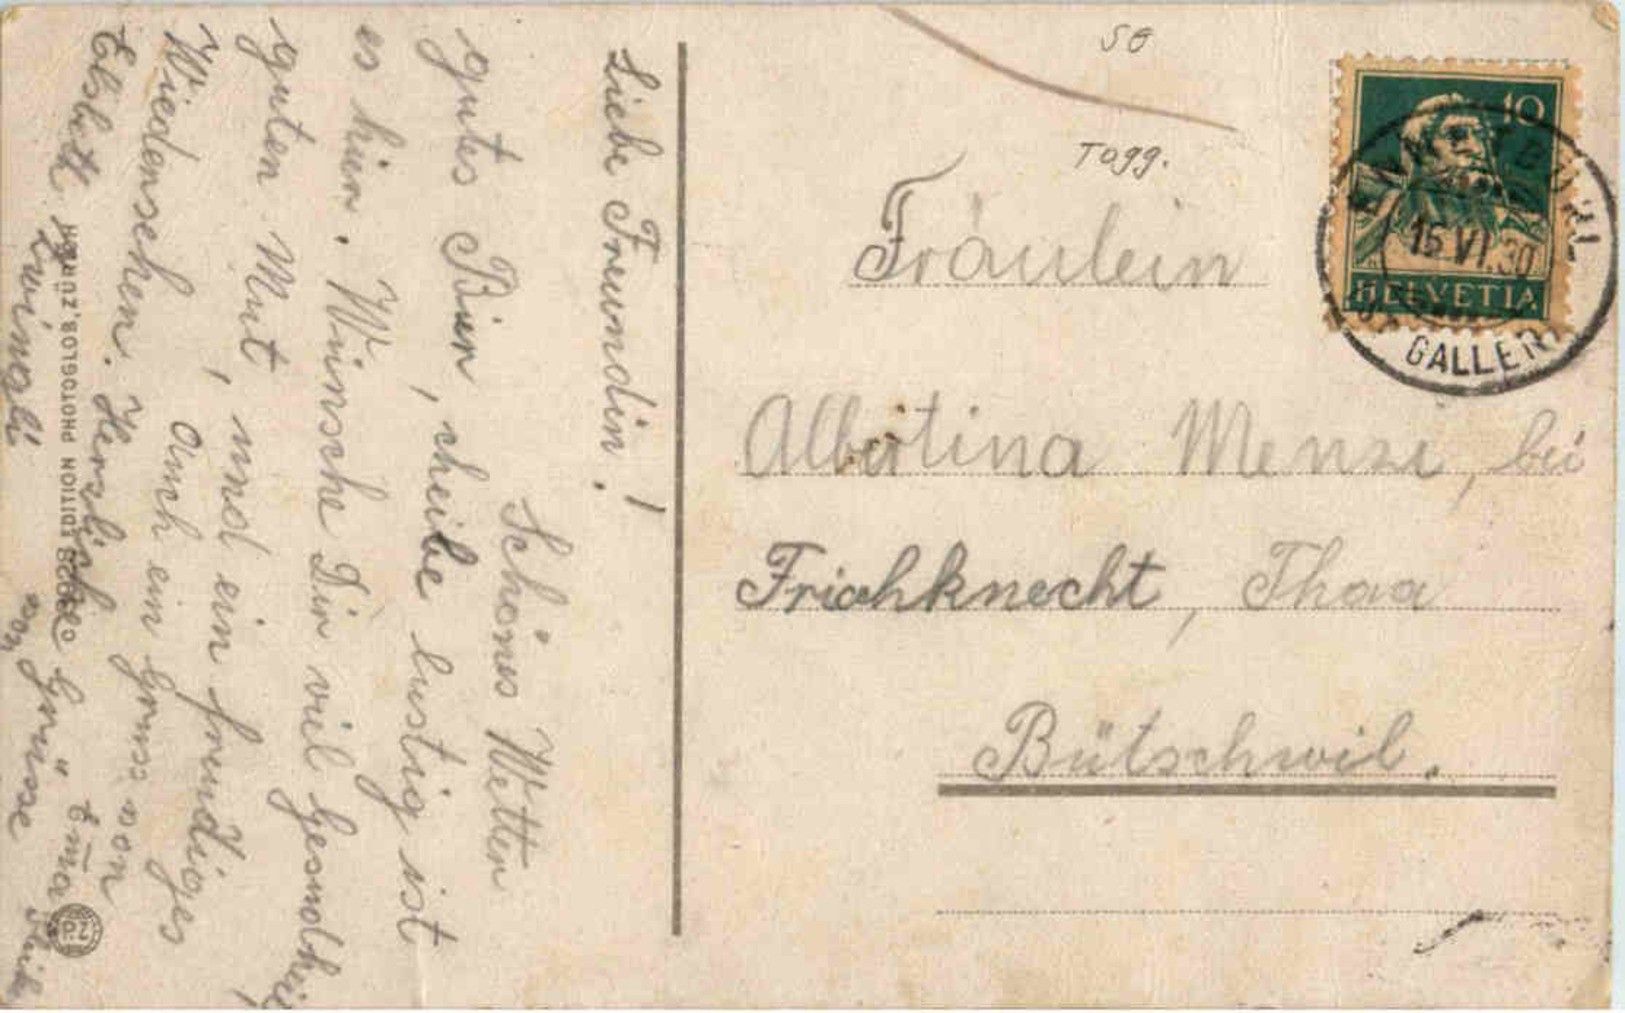 Liebe Freundin!
Schönes Wetter
gutes Bier, cheibe lustig ist
es hier. Wünsche Dir viel Gesundheit,
guten Mut, und ein freudiges
Wiedersehen. Auch ein Gruss von
Elsbeth. Herzliche
Grüsse
von Emma
EDITION PHOTOGLOB, ZÜRICH
P.Z
SG
Togg.
Fräulein
Albertina Menzi, bei
Frischknecht, Thaa
Bütschwil.
10
HELVETIA
15 VI. 30
GALLEN